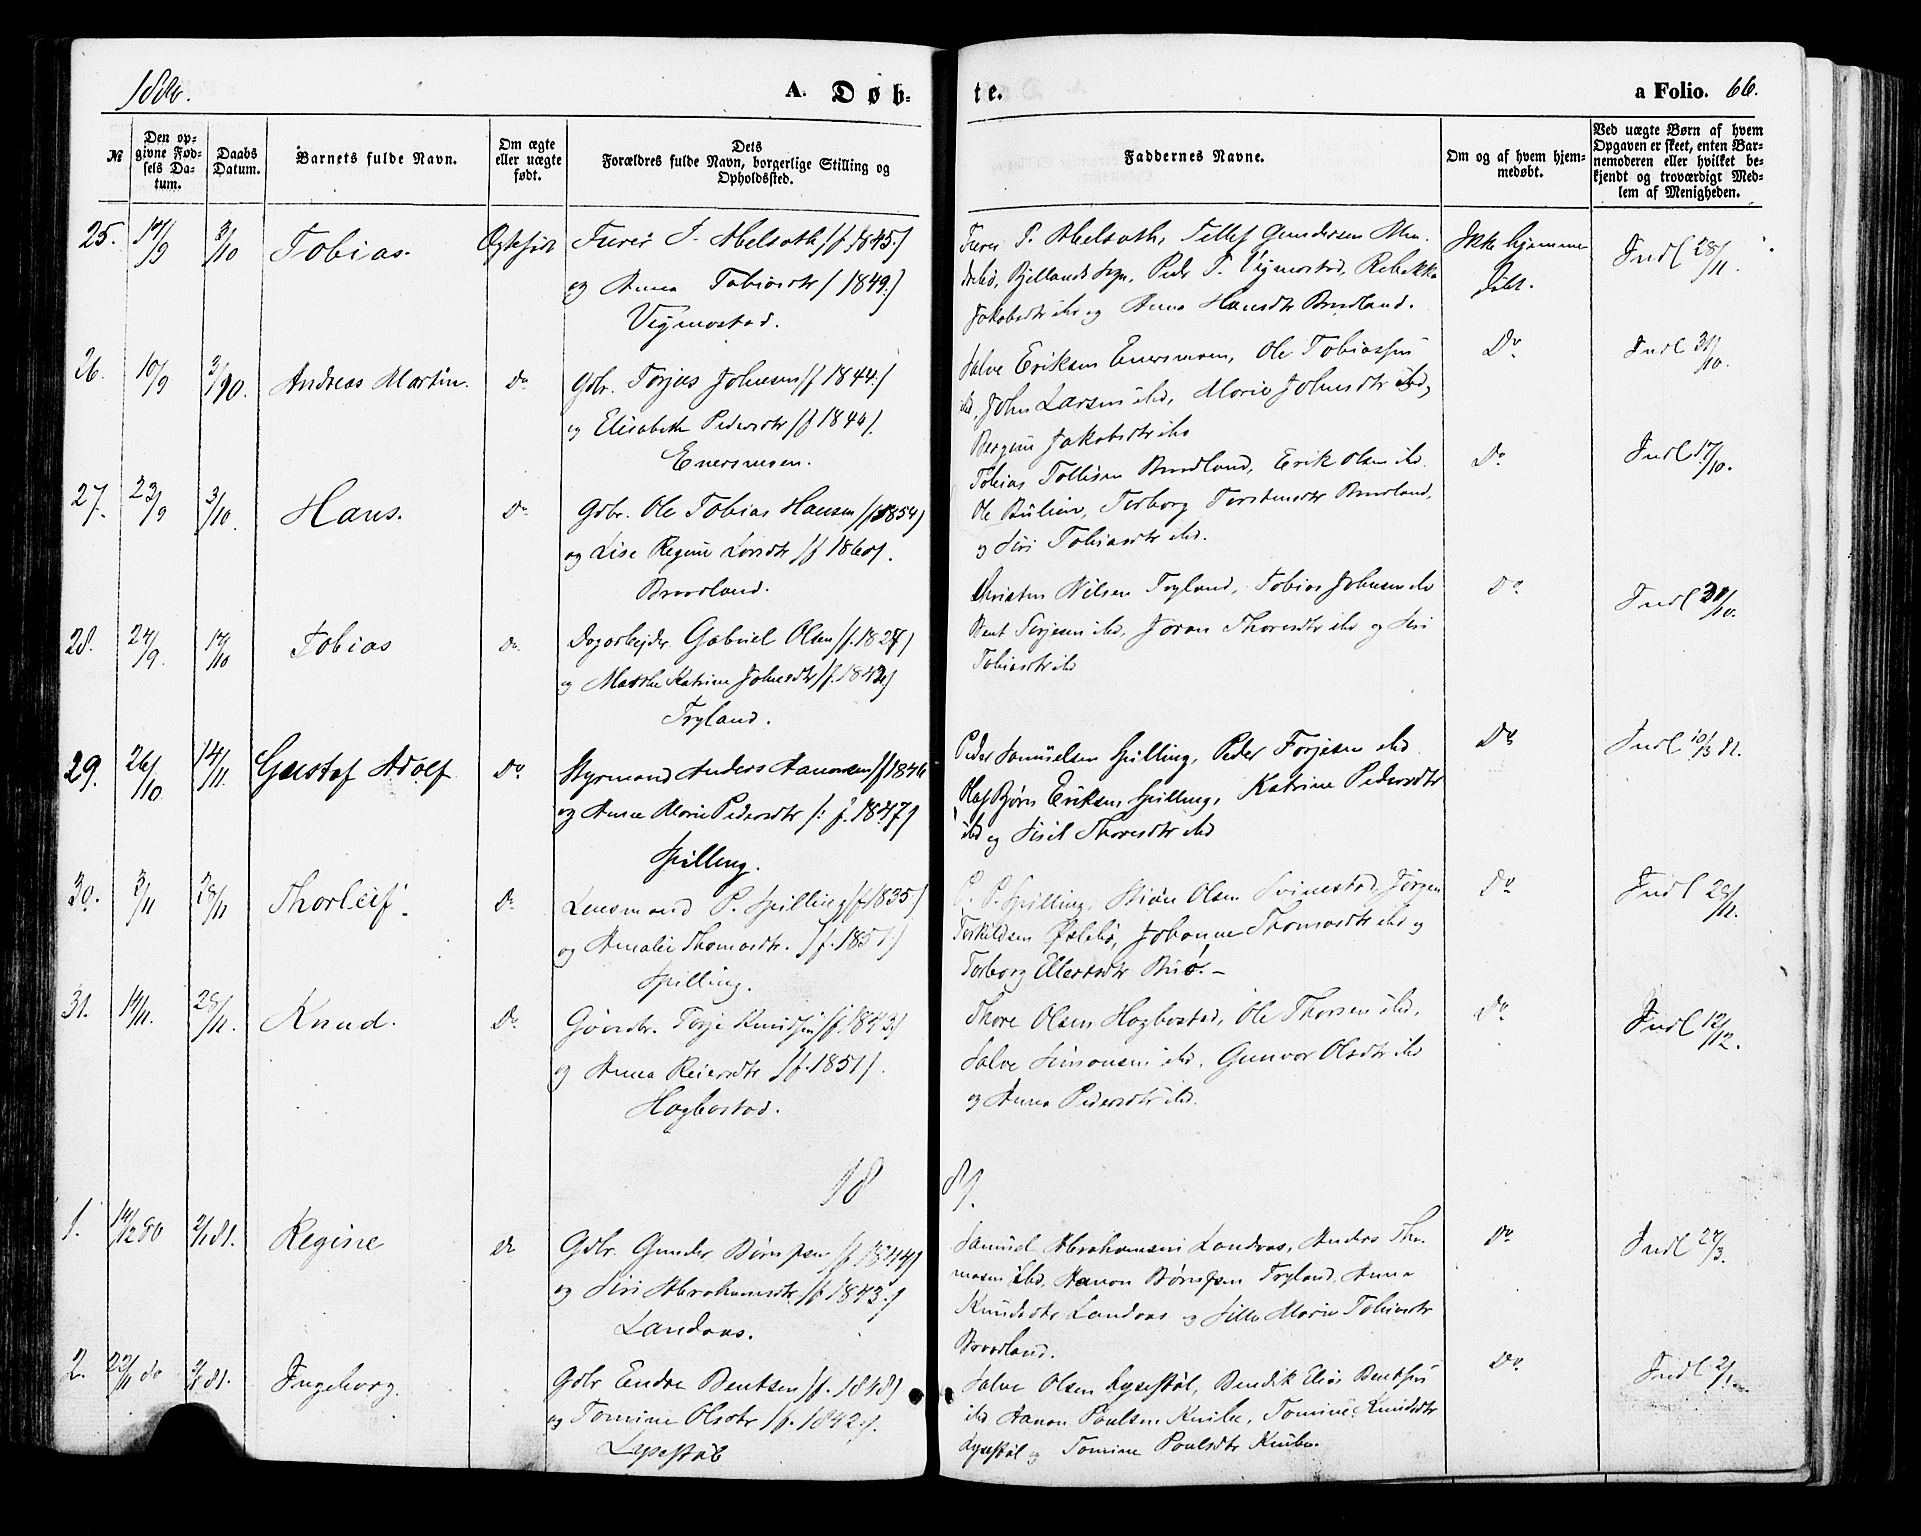 1880.
A. Døb-
te.
a Folio. 66.
№
Den op-
givne Fød-
sels Da-
tum.
Daabs
Datum.
Barnets fulde Navn.
Om ægte
eller uægte
født.
Dets
Forældres fulde Navn, borgerlige Stilling og
Opholdssted.
Faddernes Navne.
Om og af hvem hjem-
medøbt.
Ved uægte Børn af hvem
Opgaven er skeet, enten Bar-
nemoderen eller hvilket be-
kjendt og troværdigt Med-
lem af Menigheden.
25.
3/10
Tobias.
Ægtefødt
og Anna Tobiasdtr (1849)
Vigmostad.
Peder T. Vigmostad, Rebekka
Jakobsdtr ibd og Anna Hansdtr Brudland.
Ikke hjemme
døbt.
Indl 28/11.
26.
10/9
3/10.
Andreas Martin.
Do
Gdbr. Torjus Johnsen (f 1844)
og Elisabeth Pedersdtr (f 1844).
Enersmoen.
Salve Eriksen Enersmoen, Ole Tobiassen
ibd, John Larsen ibd, Marie Johnsdtr ibd,
Bergine Jakobsdtr ibd
Do
Indl 31/10.
27.
23/9
3/10.
Hans.
Do
Gdbr. Ole Tobias Hansen (f 1854)
og Lise Regine Larsdtr (f 1860).
Brudland.
Tobias Tollisen Brudland, Erik Olsen ibd
Torborg Torstensdtr Brudland,
og Siri Tobiasdtr ibd.
Do
Indl 17/10.
28.
24/9.
17/10
Tobias
Do
Dagarbejder Gabriel Olsen (f. 1827)
og Marthe Katrine Johnsdtr (f. 1842)
Tryland.
Christen Nilsen Tryland, Tobias Johnsen ibd
Bent Terjesen ibd, Joran Thoresdtr ibd og Siri
Tobiasdtr ibd
Do
Indl 31/10.
29.
26/10
14/11.
Gustaf Adolf
Do
Styrmand Anders Aanonsen (f 1846
og Anne Marie Pedersdtr (: f. 1847)
Spilling.
Peder Samuelsen Spilling, Peder Torjesen ibd
Olaf Bjørn Eriksen Spilling, Katrine Pedersdtr
ibd og Sisil Thoresdtr ibd
Do
Indl 10/3 81.
30.
3/11
28/11
Thorleif.
Do
Lensmand P. Spilling (f 1835)
og Amalie Thomasdtr. (f. 1851.)
Spilling.
P. P. Spilling, Stian Olsen Svinestad, Jørgen
Terkildsen Øslebø, Johanne Thomasdtr ibd og
Torborg Ellertsdtr Buø. –
Do
Indl 28/11.
31.
14/11.
28/11.
Knud.
Do
Gaardbr. Torje Knudsen (f. 1843)
og Anna Reiersdtr (f. 1851).
Høgbostad.
Thore Olsen Høgbostad, Ole Thorsen ibd,
Salve Simonsen ibd, Gunvor Olsdtr ibd
og Anna Pedersdtr ibd.
Do
Indl 12/12.
18
81.
1.
14/12 80
2/1 81.
Regine
Do
Gdbr. Gunder Børufsen (f 1844)
og Siri Abrahamsdtr (f 1843.)
Landaas.
Samuel Abrahamsen Landaas, Anders Tho-
masen ibd, Aanon Børufsen Tryland, Anna
Knudsdtr Landaas og Sille Marie Tobiasdtr
Brudland.
Do
Indl 27/3.
2.
22/11 80
2/1 81.
Ingeborg.
Gdbr Endre Bentsen (f. 1848)
og Tomine Olsdtr (f. 1842).
Lysestøl
Salve Olsen Lysestøl, Bendik Elias Bentsen
ibd Aanon Poulsen Knibe, Tomine Knudsdtr
Lysestøl og Tomine Poulsdtr Knibe.
Do
Indl 2/1